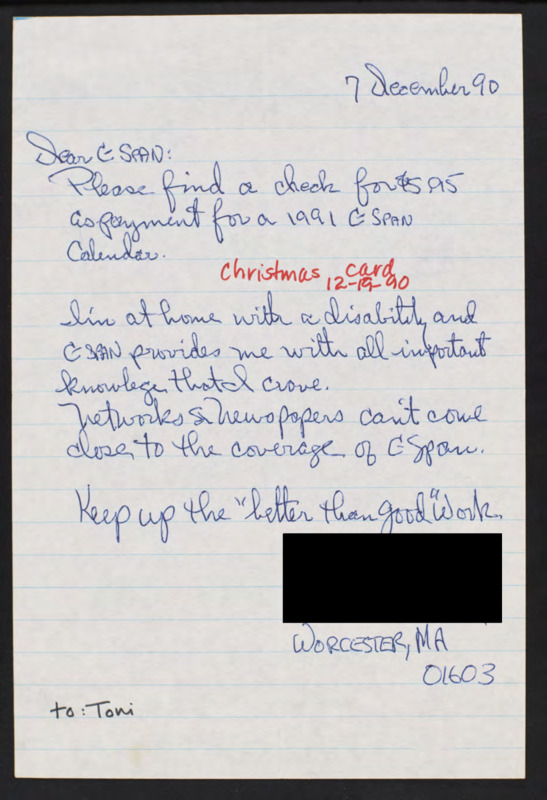 7 December 90
Dear C SPAN:
Please find a check for $5.95
as payment for a 1991 C SPAN
Calendar.
Christmas card
12-19-90
I'm at home with a disability and
C SPAN provides me with all important
knowlege that I crave.
Networks & Newspapers can't come
close to the coverage of C Span.
Keep up the "better than good" Work.
WORCESTER, MA
01603
to: Toni